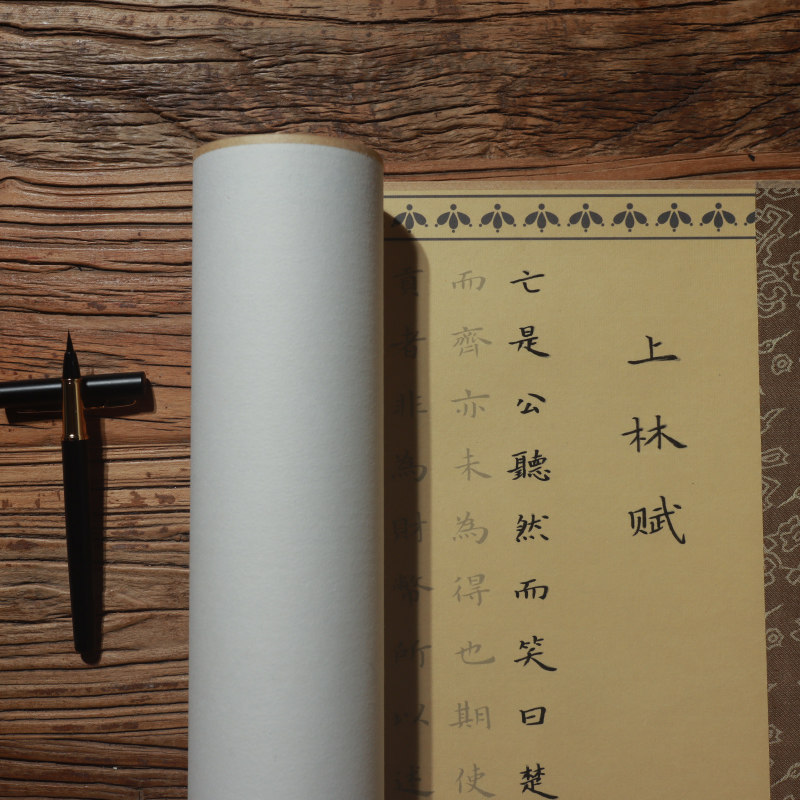 上林赋
亡是公聽然而笑曰楚
而齊亦未為得也期使
貢者非為財幣所以